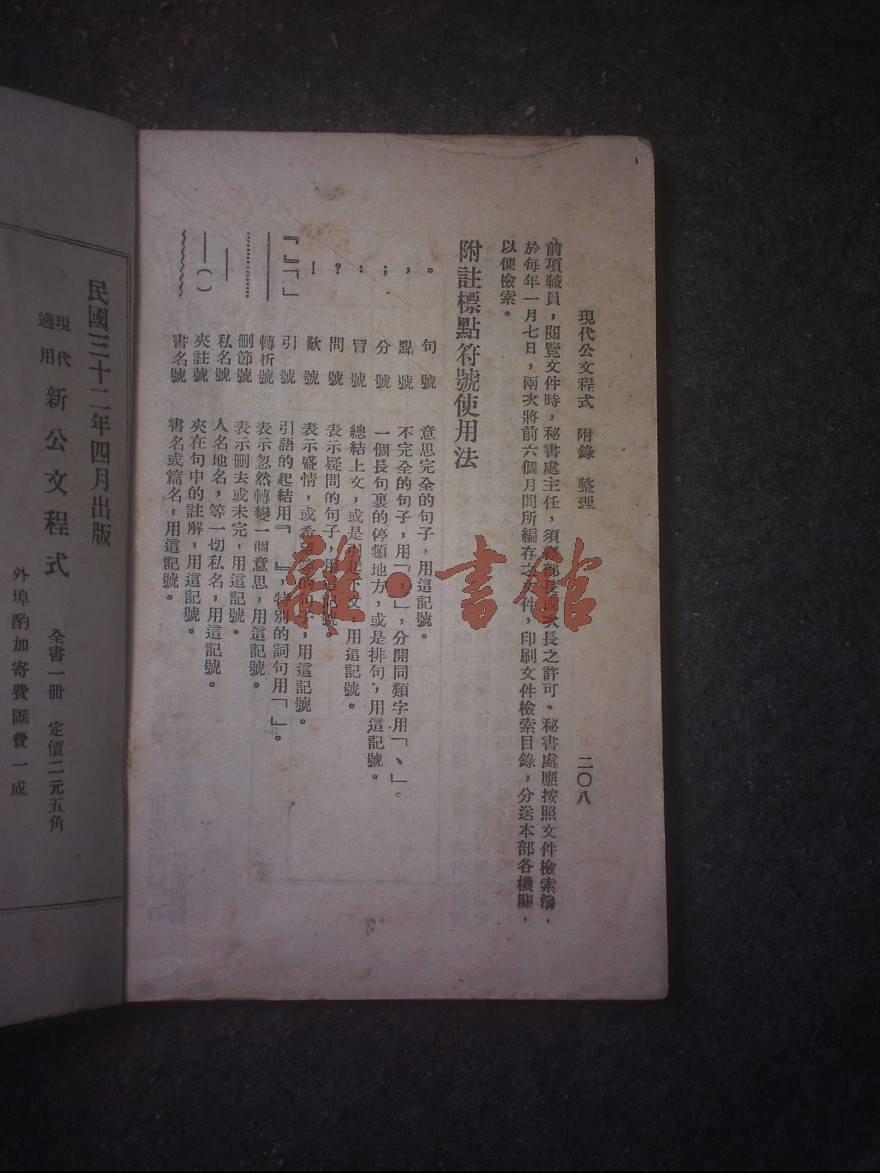 現代公文程式　附錄　整理　二〇八
前項職員，閱覽文件時，秘書處主任，須 長之許可。秘書處應按照文件檢索
於每年一月七日，兩次將前六個月間所編存之 件，印刷文件檢索目錄，分送本部各機關，
以便檢索。
附註標點符號使用法
。　句號　意思完全的句子，用這記號。
，　點號　不完全的句子，用「，」，分開同類字用「、」。
；　分號　一個長句裏的停頓地方，或是排句，用這記號。
：　冒號　總結上文，或是引起下文，用這記號。
？　問號　表示疑問的句子，用這記號
！　歎號　表示盛情，或希 的句子，用這記號。
『』「」　引號　引語的起結用『　』，特別的詞句用「　」。
——　轉折號　表示忽然轉變一個意思，用這記號。
……　刪節號　表示刪去或未完，用這記號。
—　私名號　人名地名，等一切私名，用這記號。
——（）　夾註號　夾在句中的註解，用這記號。
﹏﹏　書名號　書名或篇名，用這記號。
民國三十二年四月出版
現代適用　新公文程式　全書一冊　定價二元五角
外埠酌加寄費匯費一成
雜·書館